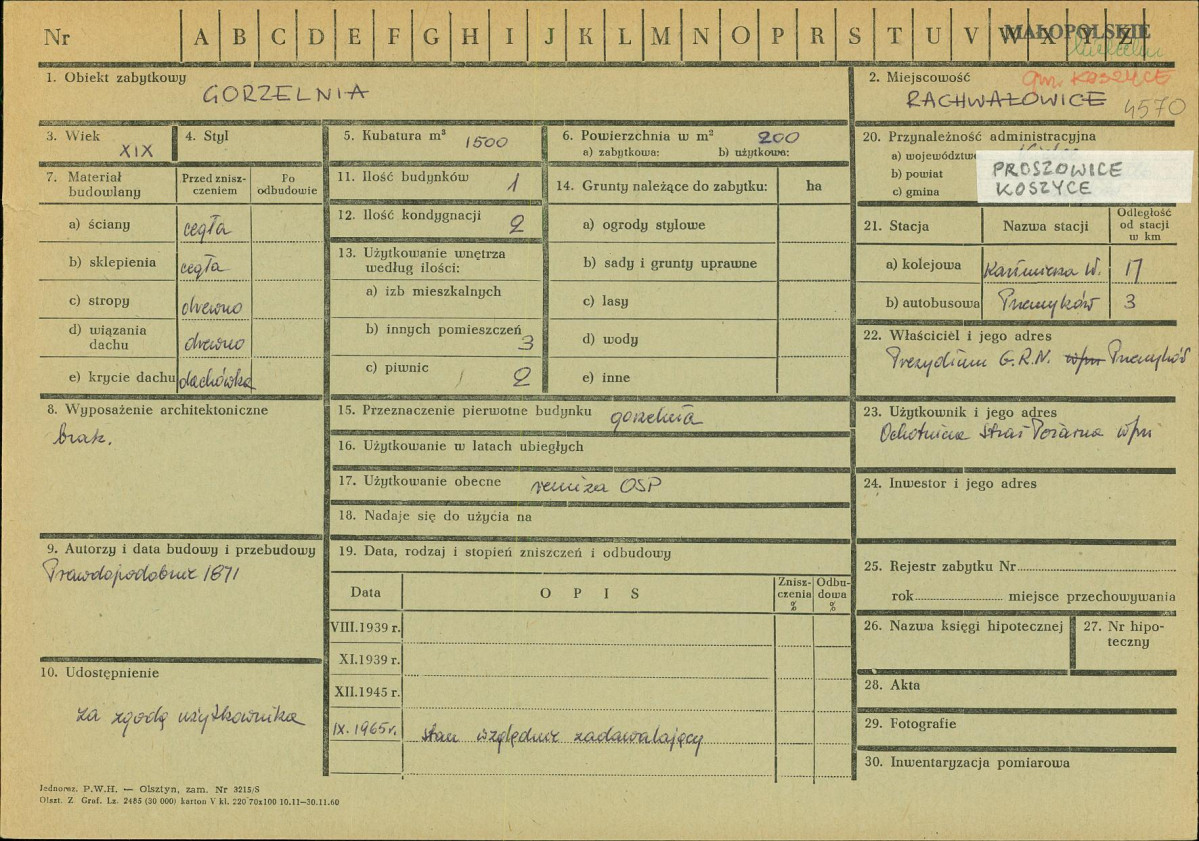 Nr A B C D E F G H I J K L M N O P R S T U V W X Y Z
MAŁOPOLSKIE
1. Obiekt zabytkowy
GORZELNIA
2. Miejscowość
gm. KOSZYCE
RACHWAŁOWICE 4570
3. Wiek
XIX
4. Styl
5. Kubatura m³ 1500
6. Powierzchnia w m² 200
a) zabytkowa: b) użytkowa:
7. Materiał budowlany
Przed zniszczeniem
Po odbudowie
a) ściany cegła
b) sklepienia cegła
c) stropy drewno
d) wiązania dachu drewno
e) krycie dachu dachówka
8. Wyposażenie architektoniczne
brak.
9. Autorzy i data budowy i przebudowy
Prawdopodobnie 1871
10. Udostępnienie
za zgodą użytkownika
11. Ilość budynków 1
12. Ilość kondygnacji 2
13. Użytkowanie wnętrza według ilości:
a) izb mieszkalnych
b) innych pomieszczeń 3
c) piwnic 2
14. Grunty należące do zabytku: ha
a) ogrody stylowe
b) sady i grunty uprawne
c) lasy
d) wody
e) inne
15. Przeznaczenie pierwotne budynku gorzelnia
16. Użytkowanie w latach ubiegłych
17. Użytkowanie obecne remiza OSP
18. Nadaje się do użycia na
19. Data, rodzaj i stopień zniszczeń i odbudowy
Data OPIS Zniszczenia % Odbudowa %
VIII.1939 r.
XI.1939 r.
XII.1945 r.
IX.1965 r. stan względnie zadawalający
20. Przynależność administracyjna
a) województwo
b) powiat PROSZOWICE
c) gmina KOSZYCE
21. Stacja Nazwa stacji Odległość od stacji w km
a) kolejowa Kazimierza W. 17
b) autobusowa Przemyków 3
22. Właściciel i jego adres
Prezydium G.R.N. Przemyków
23. Użytkownik i jego adres
Ochotnicza Straż Pożarna
24. Inwestor i jego adres
25. Rejestr zabytku Nr
rok miejsce przechowywania
26. Nazwa księgi hipotecznej
27. Nr hipoteczny
28. Akta
29. Fotografie
30. Inwentaryzacja pomiarowa
Jednoraz. P.W.H. — Olsztyn, zam. Nr 3215/S
Olszt. Z Graf. Lz. 2485 (30 000) karton V kl. 220 70x100 10.11—30.11.60